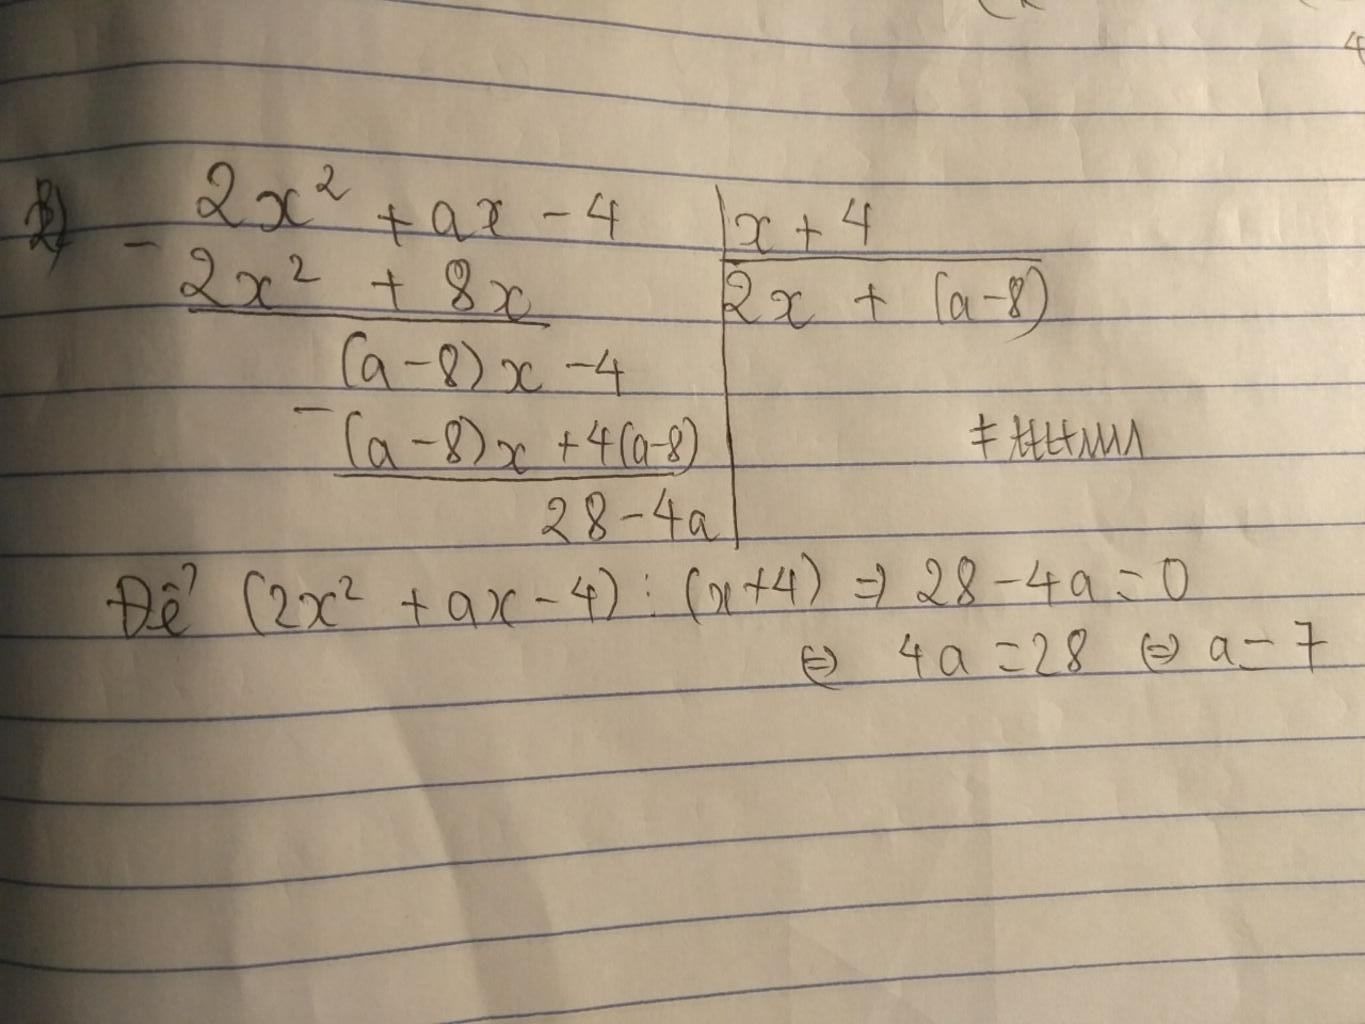 2x² + ax - 4 | x + 4
- 2x² + 8x | 2x + (a-8)
(a-8)x - 4
- (a-8)x + 4(a-8)
28 - 4a
Để (2x² + ax - 4) : (x+4) ⇒ 28 - 4a = 0
⇔ 4a = 28 ⇔ a = 7